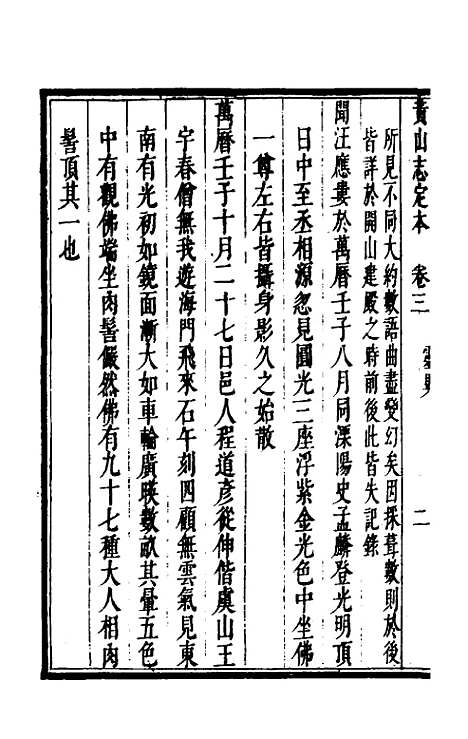 黃山志定本 卷三 靈異 二
所見不同大約數語曲盡變幻矣因採葺數則於後
皆詳於開山建殿之時前後此皆失記錄
聞汪應婁於萬曆壬子八月同溧陽史孟麟登光明頂
日中至丞相源忽見圓光三座浮紫金光色中坐佛
一尊左右皆攝身影久之始散
萬曆壬子十月二十七日邑人程道彥從伸偕虞山王
宇春僧無我遊海門飛來石午刻四顧無雲氣見東
南有光初如鏡面漸大如車輪廣暎數畝其暈五色
中有觀佛端坐肉髻儼然佛有九十七種大人相肉
髻頂其一也